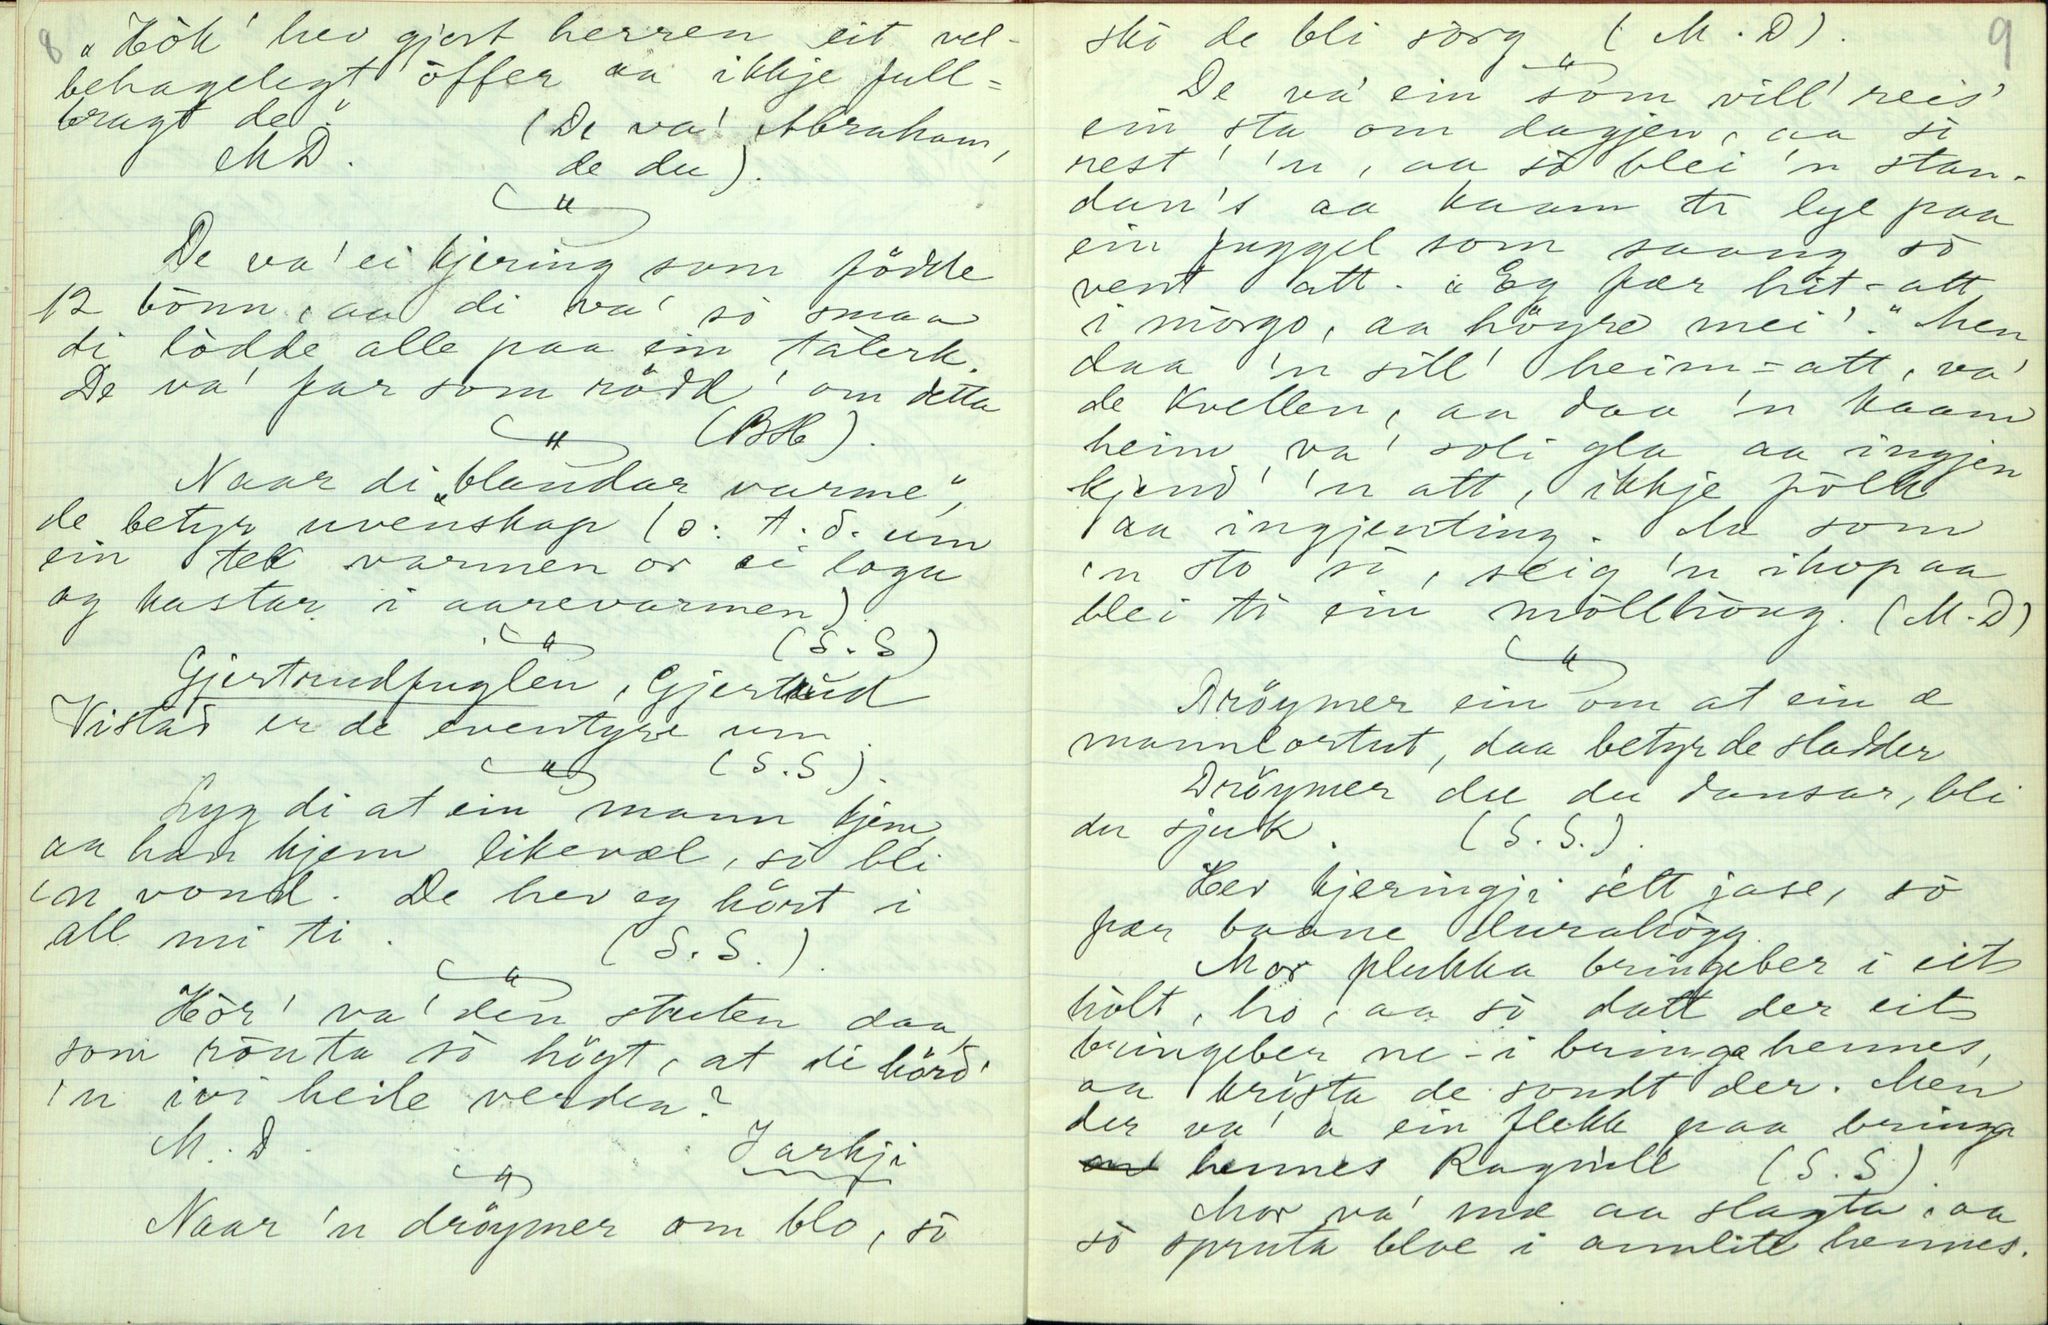 8
"Hök' hev gjort herren eit vel-
behagelegt öffer aa ikkje full=
bragt de". (De va' Abraham,
M D. de du).
De va' ei kjering som födde
12 bönn, aa di va' sò smaa
di lödde alle paa ein talerk.
De va' far som rödd' om detta
(BH).
Naar di "blandar varme",
de betyr uvenskap (ɔ: t. d. um
ein tek varmen or ei loga
og kastar i aarevarmen)
(S.S)
Gjertrudfuglen, Gjertrud
Vistad er de eventyre um.
(S.S).
Lyg di at ein mann kjem,
aa han kjem likevæl, sò bli
'n vond. De hev eg hört i
all mi ti. (S.S.).
Hör' va' den stuten daa,
som rauta sò högt, at di hörd'
'n ivi heile verden?
M.D. I arkji
Naar 'n dröymer om blo, sò
9
skò de bli sorg (M.D).
De va' ein som vill' reis'
ein sta om dagjen, aa sò
rest' 'n, aa sò blei 'n stan-
dan's aa kaam ti lye paa
ein fuggel som saang sò
vent att. "Eg fær hit-att
i mòrgo, aa höyre mei'." Men
daa 'n sill' heim=att, va'
de kvellen, aa daa 'n kaam
heim va' soli gla aa ingjen
kjend' 'n att, ikkje fölk
aa ingjenting. Aa som
'n sto sò, seig 'n ihop aa
blei ti ein möllhaug. (M.D)
Dröymer ein om at ein æ
mannlortut, daa betyr de sladder
Dröymer du du dansar, bli
du sjuk. (S.S.).
Hev kjeringji sétt jase, sò
fær baane durahögg.
Mor plukka bringeber i eit
hòlt, ho, aa sò datt der eit
bringeber ne-i bringa hennes,
aa krista de sondt der. Men
der va' a ein flekk paa bringa
hennes Ragnill (S.S).
Mor va' mæ aa slagta, aa
sò spruta bloe i annlite hennes.